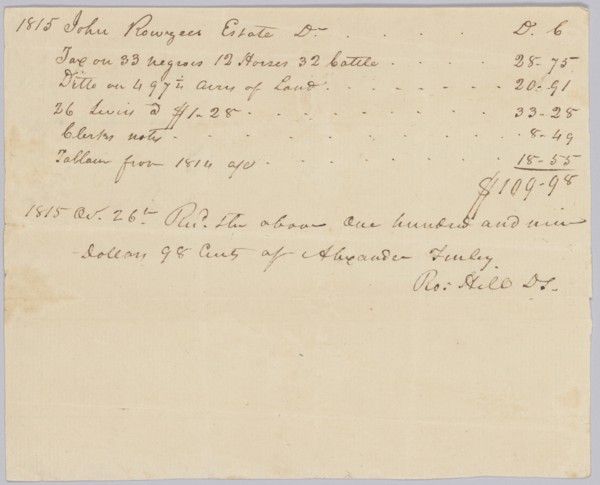 1815 John Rowzees Estate Dr . . . . . D. C
Tax on 33 negroes 12 Horses 32 Cattle . . . . 28-75
Ditto on 497½ acres of Land . . . . . . 20-91
26 Levies @ $1-28 . . . . . . . . 33-28
Clerks notes . . . . . . . . 8-49
from 1814 . . . . . . 18-55
$109-98
1815 26th Recd. the above One hundred and nine
Dollars 98 Cents of Alexander Finley
Ro: Hill DS.